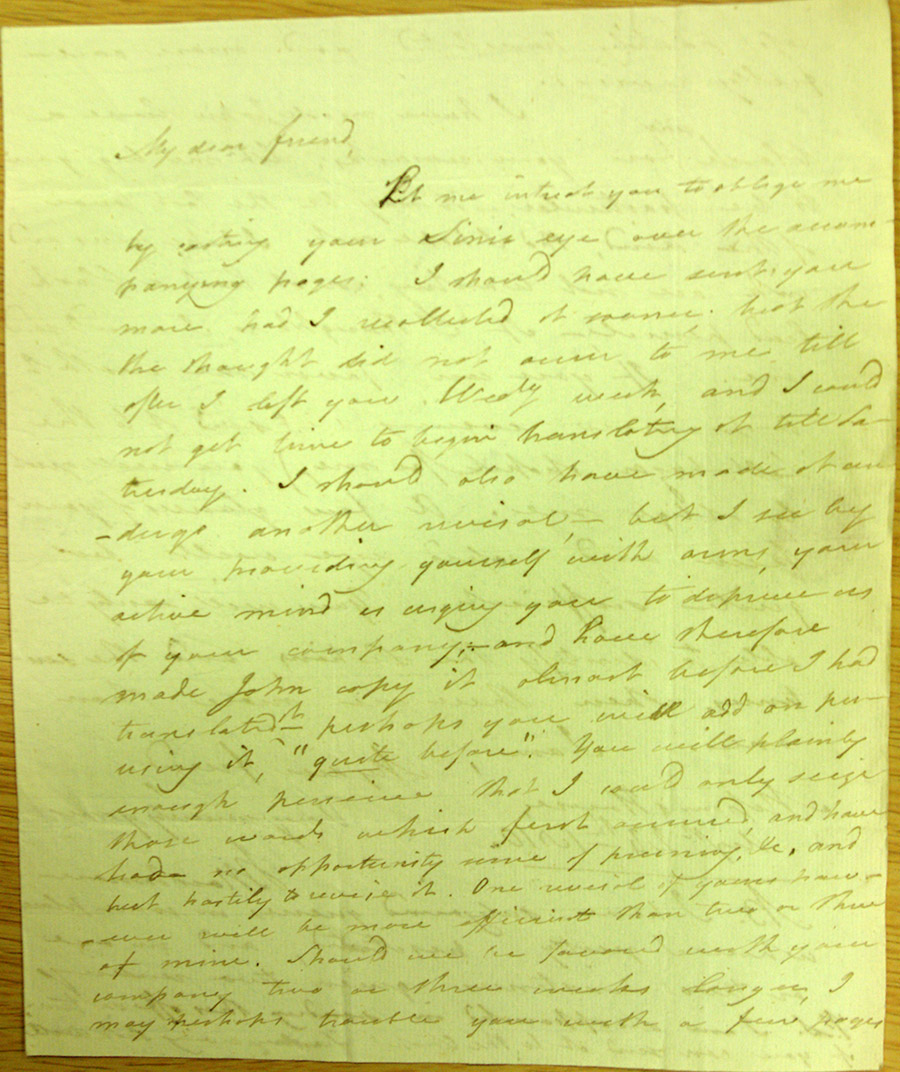 My dear friend,
Let me intreat you to oblige me
by casting your Sinic eye over the accom-
panying pages: I should have sent you
more had I recollected it sooner. but the
the thought did not occur to me till
after I left you Wedy week, and I could
not get time to begin translating it till Sa-
turday. I should also have made it un-
-dergo another revisal,- but I see by
your providing yourself with arms, your
active mind is urging you to deprive us
of your company;- and have therefore
made John copy it almost before I had
translated it - perhaps you will add on per-
using it, "quite before". You will plainly
enough perceive that I could only seize
those words which first occurred, and have
had no opportunity since of pruning, &c. and
but hastily to revise it. One revisal of yours how-
-ever will be more efficient than two or three
of mine. Should we be favored with your
company two or three weeks longer, I
may perhaps trouble you with a few pages